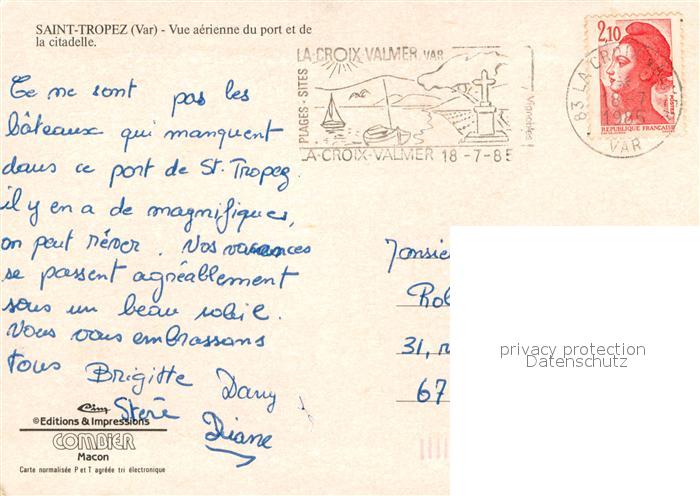 SAINT-TROPEZ (Var) - Vue aérienne du port et de
la citadelle.
LA-CROIX-VALMER VAR
PLAGES-SITES
Vignobles
LA-CROIX-VALMER 18-7-85
2,10
REPUBLIQUE FRANCAISE
83 LA CROIX
18-7
1985
VAR
Ce ne sont pas les
bâteaux qui manquent
dans ce port de St. Tropez.
il y en a de magnifiques,
on peut rêver. Vos vacances
se passent agréablement
sous un beau soleil.
Vous vous embrassons
tous Brigitte Dany
Diane
Monsieu
Rob
31, r
67
privacy protection
Datenschutz
Cim
©Editions & Impressions
COMBIER
Macon
Carte normalisée P et T agréée tri électronique